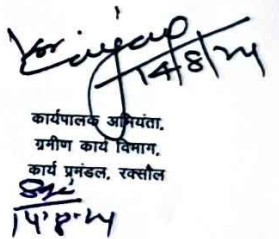 14/8/24
कार्यपालक अभियंता,
ग्रमीण कार्य विभाग,
कार्य प्रमंडल, रक्सौल
14.8.24